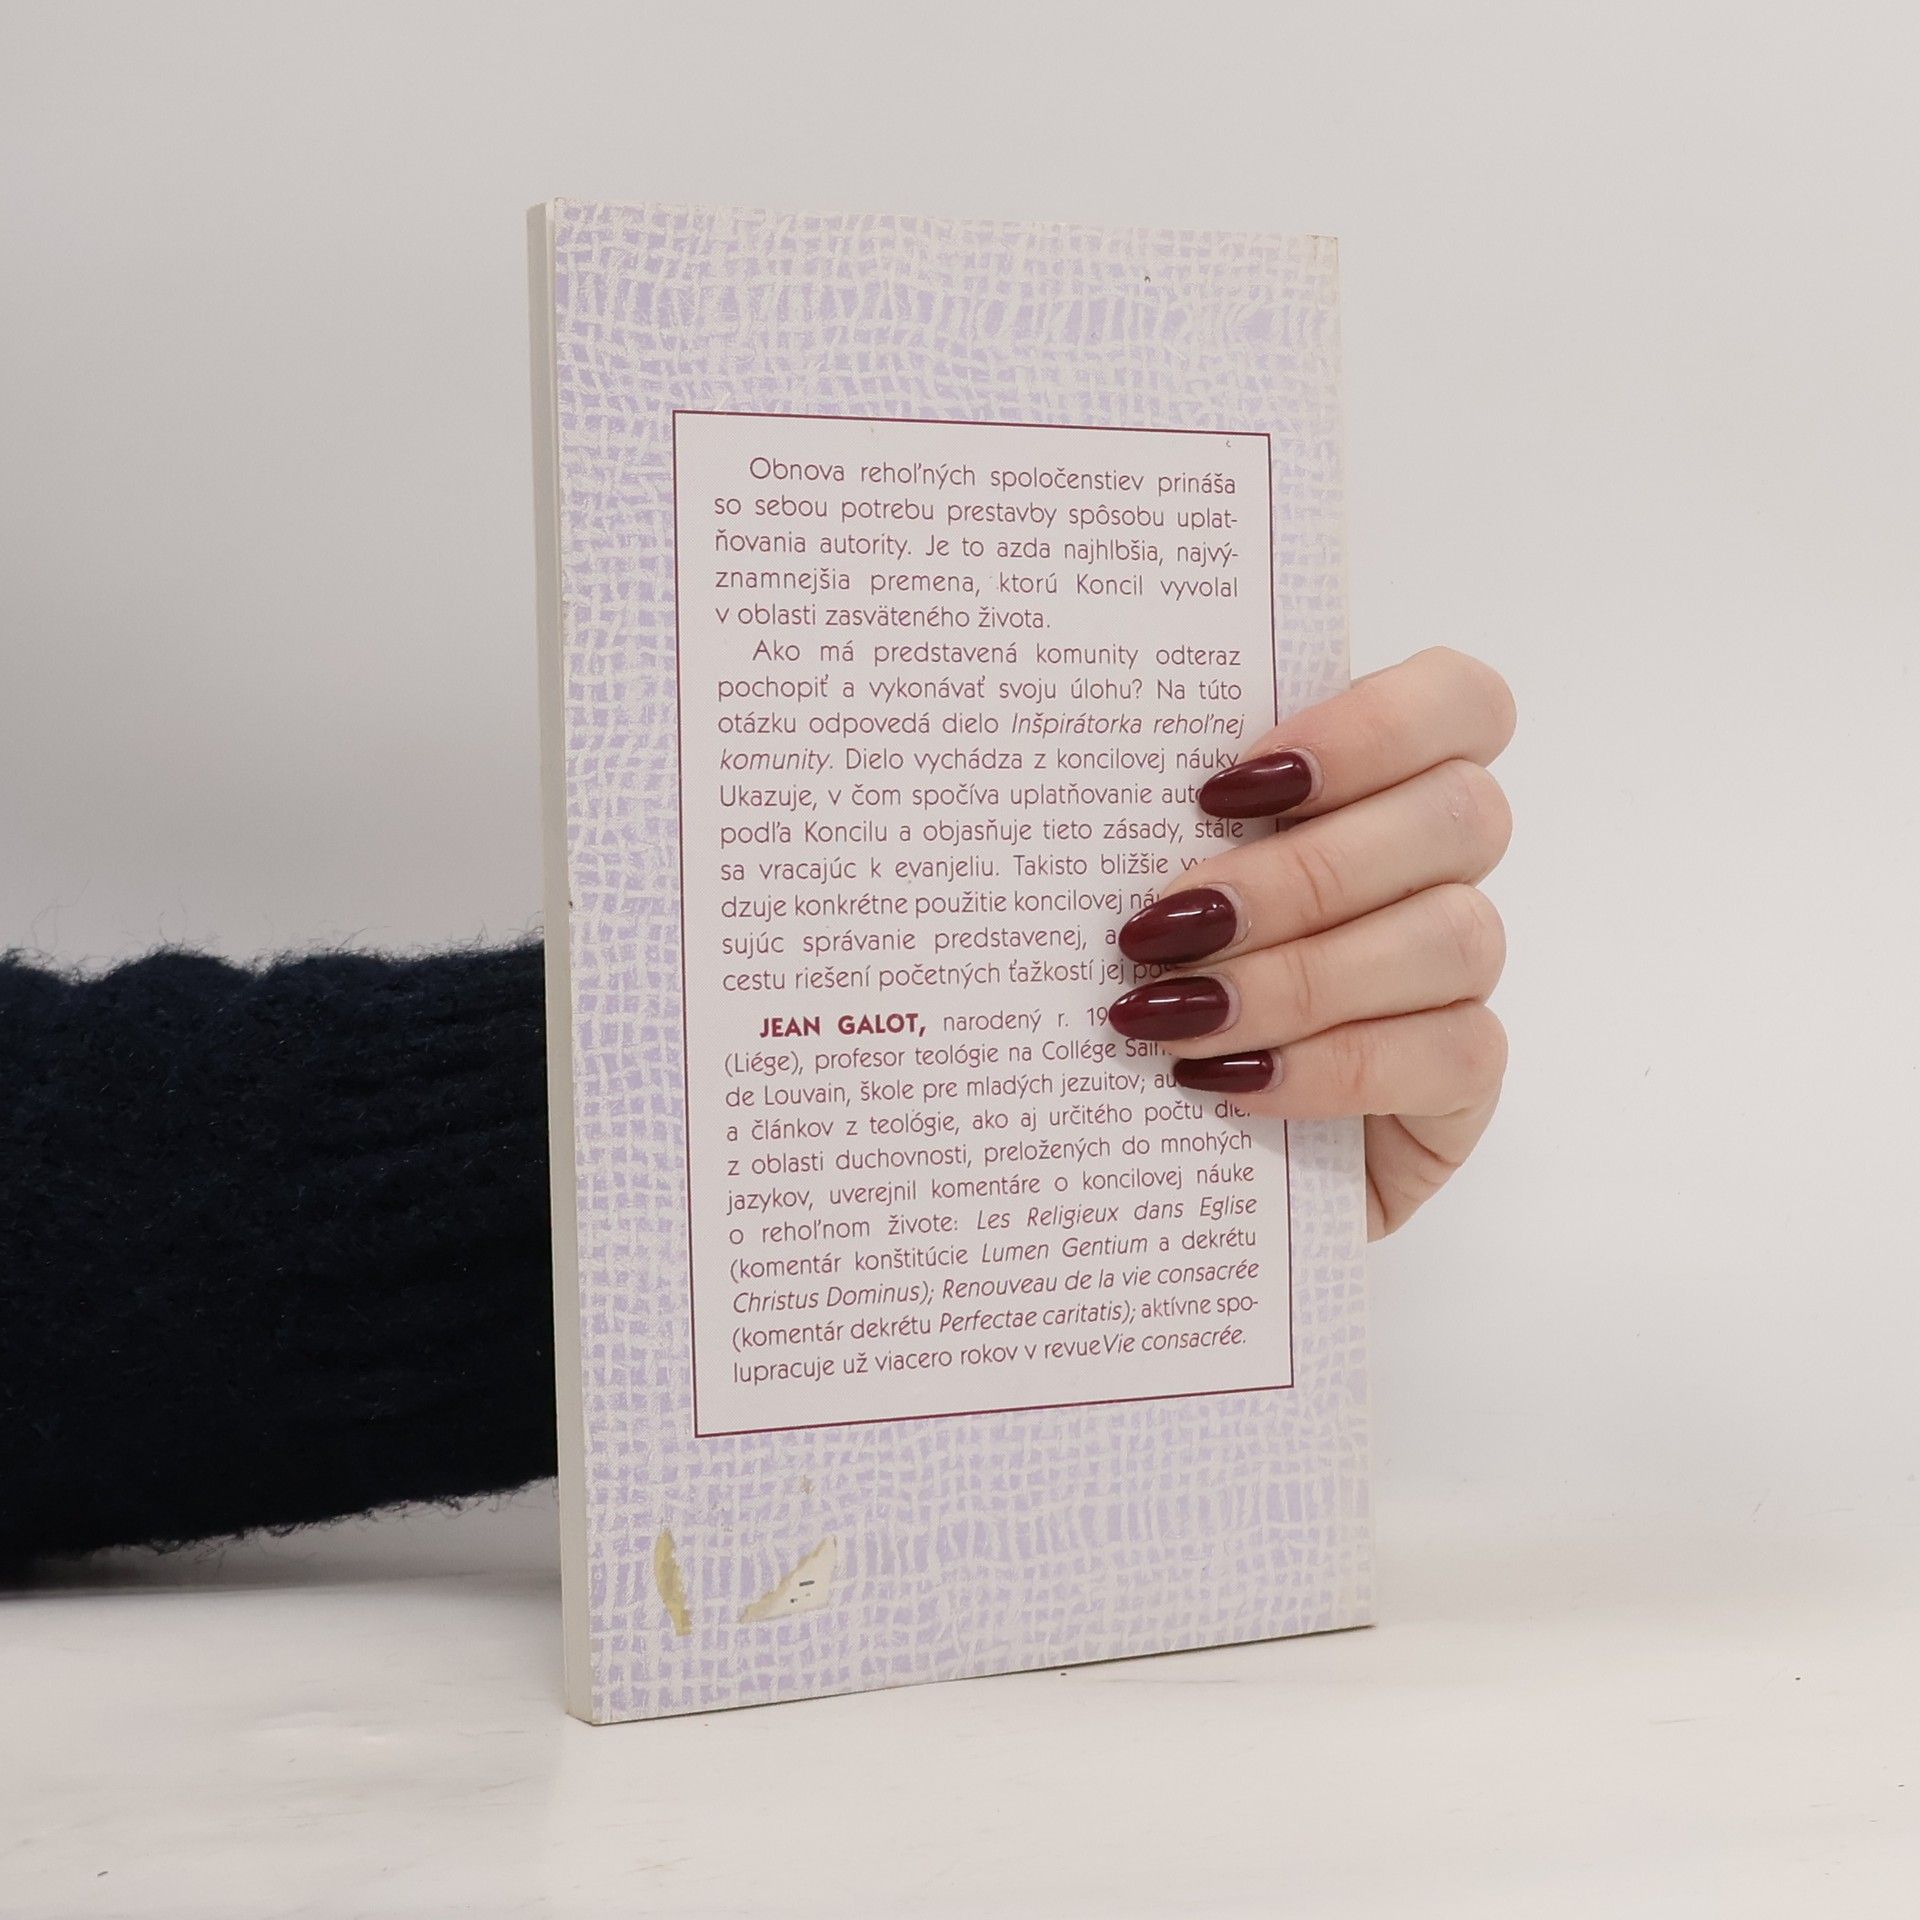 Obnova rehoľných spoločenstiev prináša
so sebou potrebu prestavby spôsobu uplat-
ňovania autority. Je to azda najhlbšia, najvý-
znamnejšia premena, ktorú Koncil vyvolal
v oblasti zasväteného života.
Ako má predstavená komunity odteraz
pochopiť a vykonávať svoju úlohu? Na túto
otázku odpovedá dielo Inšpirátorka rehoľnej
komunity. Dielo vychádza z koncilovej náuky.
Ukazuje, v čom spočíva uplatňovanie
podľa Koncilu a objasňuje tieto zásady, stále
sa vracajúc k evanjeliu. Takisto bližšie
dzuje konkrétne použitie koncilovej
sujúc správanie predstavenej,
cestu riešení početných ťažkostí jej
JEAN GALOT, narodený r.
(Liége), profesor teológie na Collége
de Louvain, škole pre mladých jezuitov;
a článkov z teológie, ako aj určitého počtu diel
z oblasti duchovnosti, preložených do mnohých
jazykov, uverejnil komentáre o koncilovej náuke
o rehoľnom živote: Les Religieux dans Eglise
(komentár konštitúcie Lumen Gentium a dekrétu
Christus Dominus); Renouveau de la vie consacrée
(komentár dekrétu Perfectae caritatis); aktívne spo-
lupracuje už viacero rokov v revue Vie consacrée.